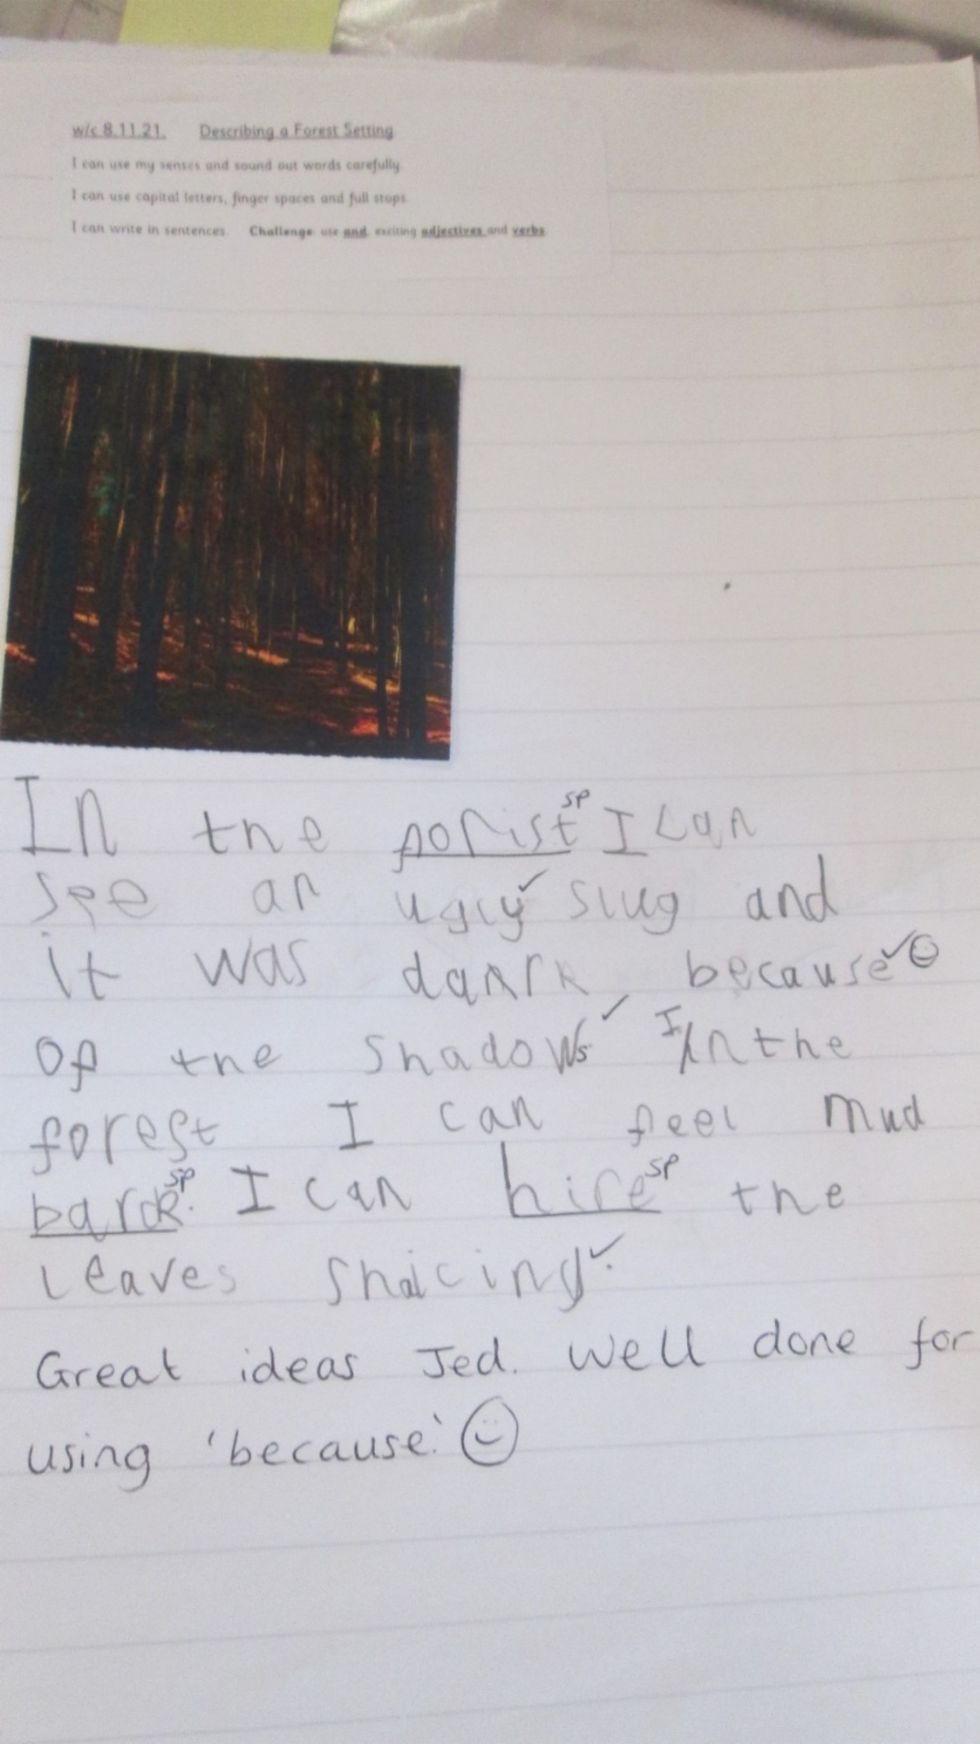 w/c 8.11.21. Describing a Forest Setting
I can use my senses and sound out words carefully.
I can use capital letters, finger spaces and full stops.
I can write in sentences. Challenge: use and, exciting adjectives and verbs.
sp
In the porist I can
see an ugly slug and
it was darrk because
of the shadows In the
forest I can feel mud
sp sp
barck. I can hire the
leaves shaicing.
Great ideas Jed. Well done for
using 'because'.